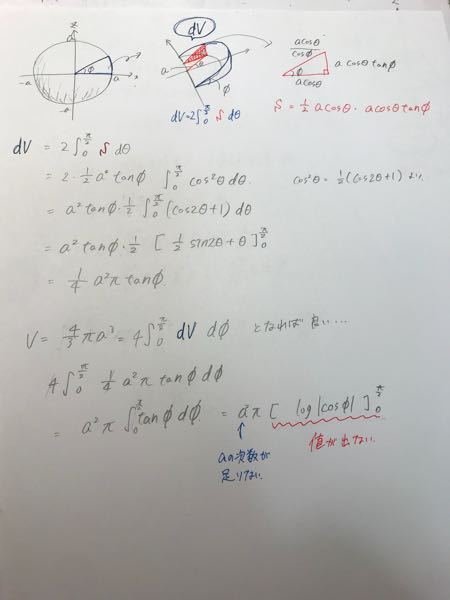 z
a
-a
φ
a
x
-a
dV
φ
dV=2∫₀^{π/2} S dθ
acosθ/cosφ
a cosθ tanφ
φ
acosθ
S = 1/2 acosθ・acosθtanφ
dV = 2∫₀^{π/2} S dθ
= 2・1/2 a² tanφ ∫₀^{π/2} cos²θ dθ
cos²θ = 1/2(cos2θ+1) より
= a² tanφ・1/2 ∫₀^{π/2} (cos2θ+1) dθ
= a² tanφ・1/2 [ 1/2 sin2θ+θ ]₀^{π/2}
= 1/4 a²π tanφ
V = 4/3 πa³ = 4∫₀^{π/2} dV dφ となれば良い…
4∫₀^{π/2} 1/4 a²π tanφ dφ
= a²π ∫₀^{π/2} tanφ dφ = a²π [ log|cosφ| ]₀^{π/2}
↑
aの次数が
足りない
値が出ない